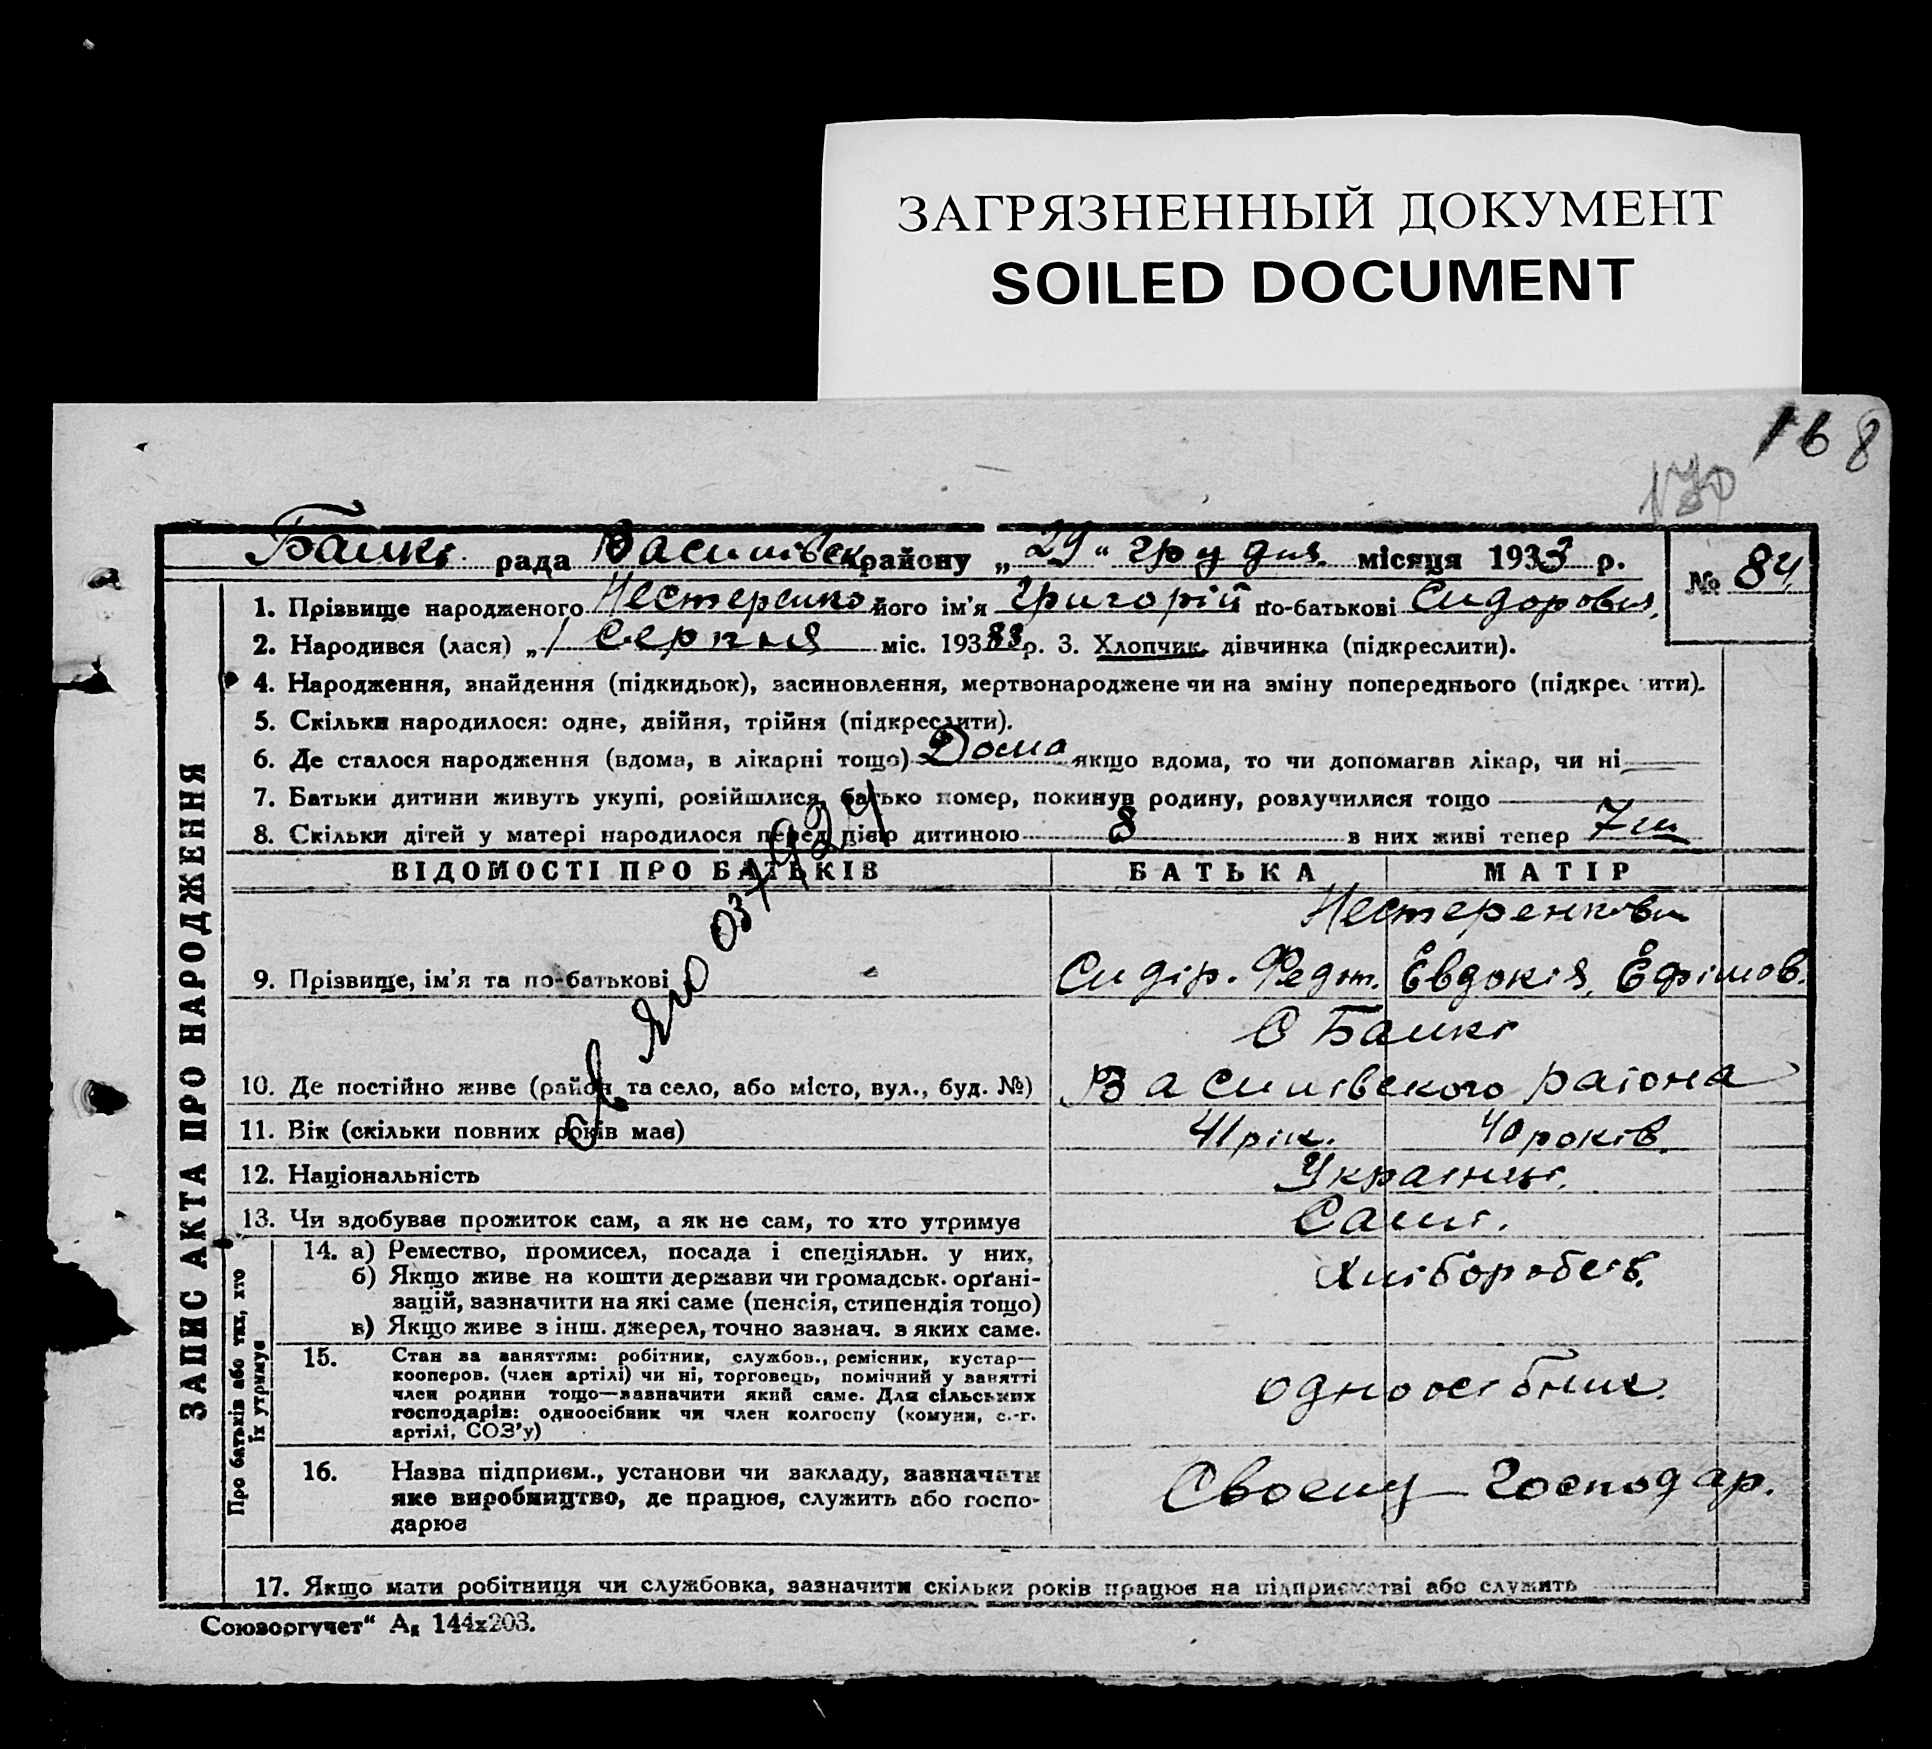 ЗАГРЯЗНЕННЫЙ ДОКУМЕНТ
SOILED DOCUMENT
168
170
Балкі рада Василівськ району „29“ грудня місяця 1933 р.
№ 84
1. Прізвище народженого Нестеренко його ім'я Григорій по-батькові Сидорович,
2. Народився (лася) „1 серпня міс. 1933 р. 3. Хлопчик, дівчинка (підкреслити).
4. Народження, знайдення (підкидьок), засиновлення, мертвонароджене чи на зміну попереднього (підкрес ити).
5. Скільки народилося: одне, двійня, трійня (підкреслити).
6. Де сталося народження (вдома, в лікарні тощо) Дома якщо вдома, то чи допомагав лікар, чи ні
7. Батьки дитини живуть укупі, розійшлися, батько помер, покинув родину, розлучилися тощо
8. Скільки дітей у матері народилося перед цією дитиною 8 в них живі тепер 7
ВІДОМОСТІ ПРО БАТЬКІВ БАТЬКА МАТІР
Нестеренкови
9. Прізвище, ім'я та по-батькові Сидір. Федот. Євдокія, Єфімов.
С Балкі
10. Де постійно живе (район та село, або місто, вул., буд. №) Василівского раіона
11. Вік (скільки повних років має) 41 рік. 40 років
12. Національність Украінці.
13. Чи здобуває прожиток сам, а як не сам, то хто утримує Самі.
14. а) Ремество, промисел, посада і спеціяльн. у них, Хліборобств.
б) Якщо живе на кошти держави чи громадськ. орґані-
зацій, зазначити на які саме (пенсія, стипендія тощо)
в) Якщо живе з інш. джерел, точно зазнач. з яких саме.
15. Стан за заняттям: робітник, службов., ремісник, кустар—
кооперов. (член артілі) чи ні, торговець, помічний у занятті
член родини тощо—зазначити який саме. Для сільських
господарів: одноосібник чи член колгоспу (комуни, с.-г.
артілі, СОЗ'у)
одноосібник.
16. Назва підприєм., установи чи закладу, зазначати
яке виробництво, де працює, служить або госпо-
дарює
Своему господар.
17. Якщо мати робітниця чи службовка, зазначити скільки років працює на підприємстві або служить
ЗАПИС АКТА ПРО НАРОДЖЕННЯ
Про батьків або тих, хто
їх утримує
Союзоргучет“ А₅ 144х203.